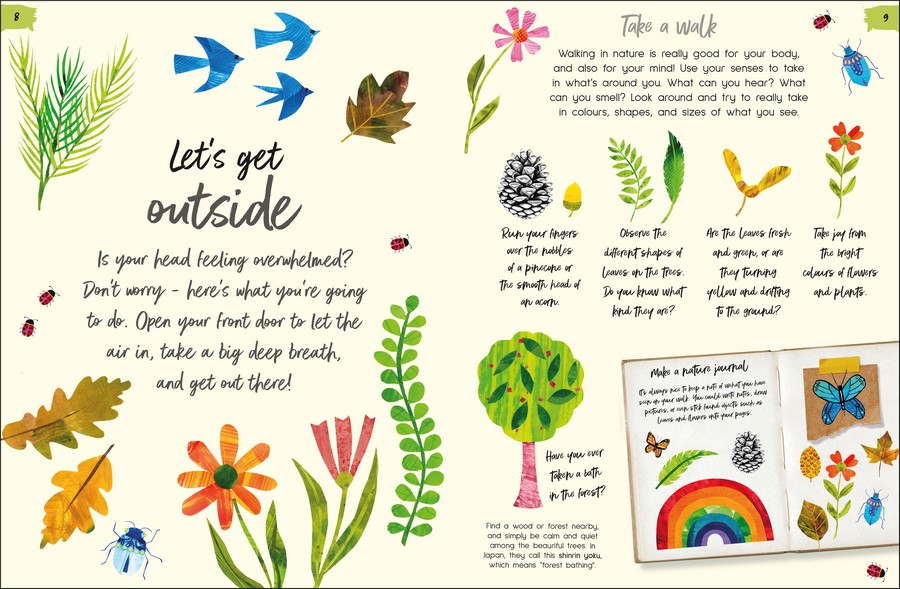 8
Let's get
outside
Is your head feeling overwhelmed?
Don't worry - here's what you're going
to do. Open your front door to let the
air in, take a big deep breath,
and get out there!
9
Take a walk
Walking in nature is really good for your body,
and also for your mind! Use your senses to take
in what's around you. What can you hear? What
can you smell? Look around and try to really take
in colours, shapes, and sizes of what you see.
Run your fingers
over the nobbles
of a pinecone or
the smooth head of
an acorn.
Observe the
different shapes of
leaves on the trees.
Do you know what
kind they are?
Are the leaves fresh
and green, or are
they turning
yellow and drifting
to the ground?
Take joy from
the bright
colours of flowers
and plants.
Have you ever
taken a bath
in the forest?
Find a wood or forest nearby,
and simply be calm and quiet
among the beautiful trees. In
Japan, they call this shinrin yoku,
which means "forest bathing".
Make a nature journal
It's always nice to keep a note of what you have
seen on your walk. You could write notes, draw
pictures, or even stick found objects such as
leaves and flowers onto your pages.